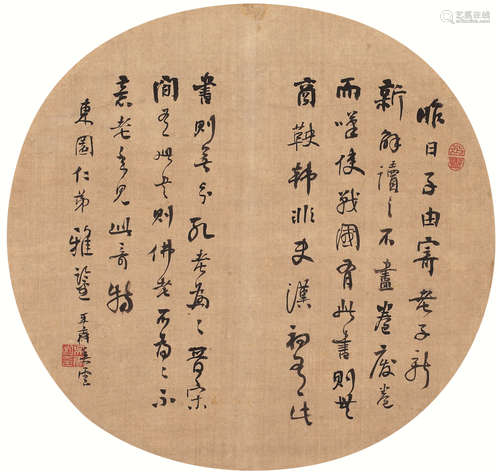 昨日子由寄老子新
新解讀之不盡卷廢卷
而嘆使戰國有此書則無
商鞅韓非使漢初有此
書則無分孔老為二晉宋
間有此書則佛老不為二不
意老年見此奇特
東園仁弟雅鑒 平齋吳雲